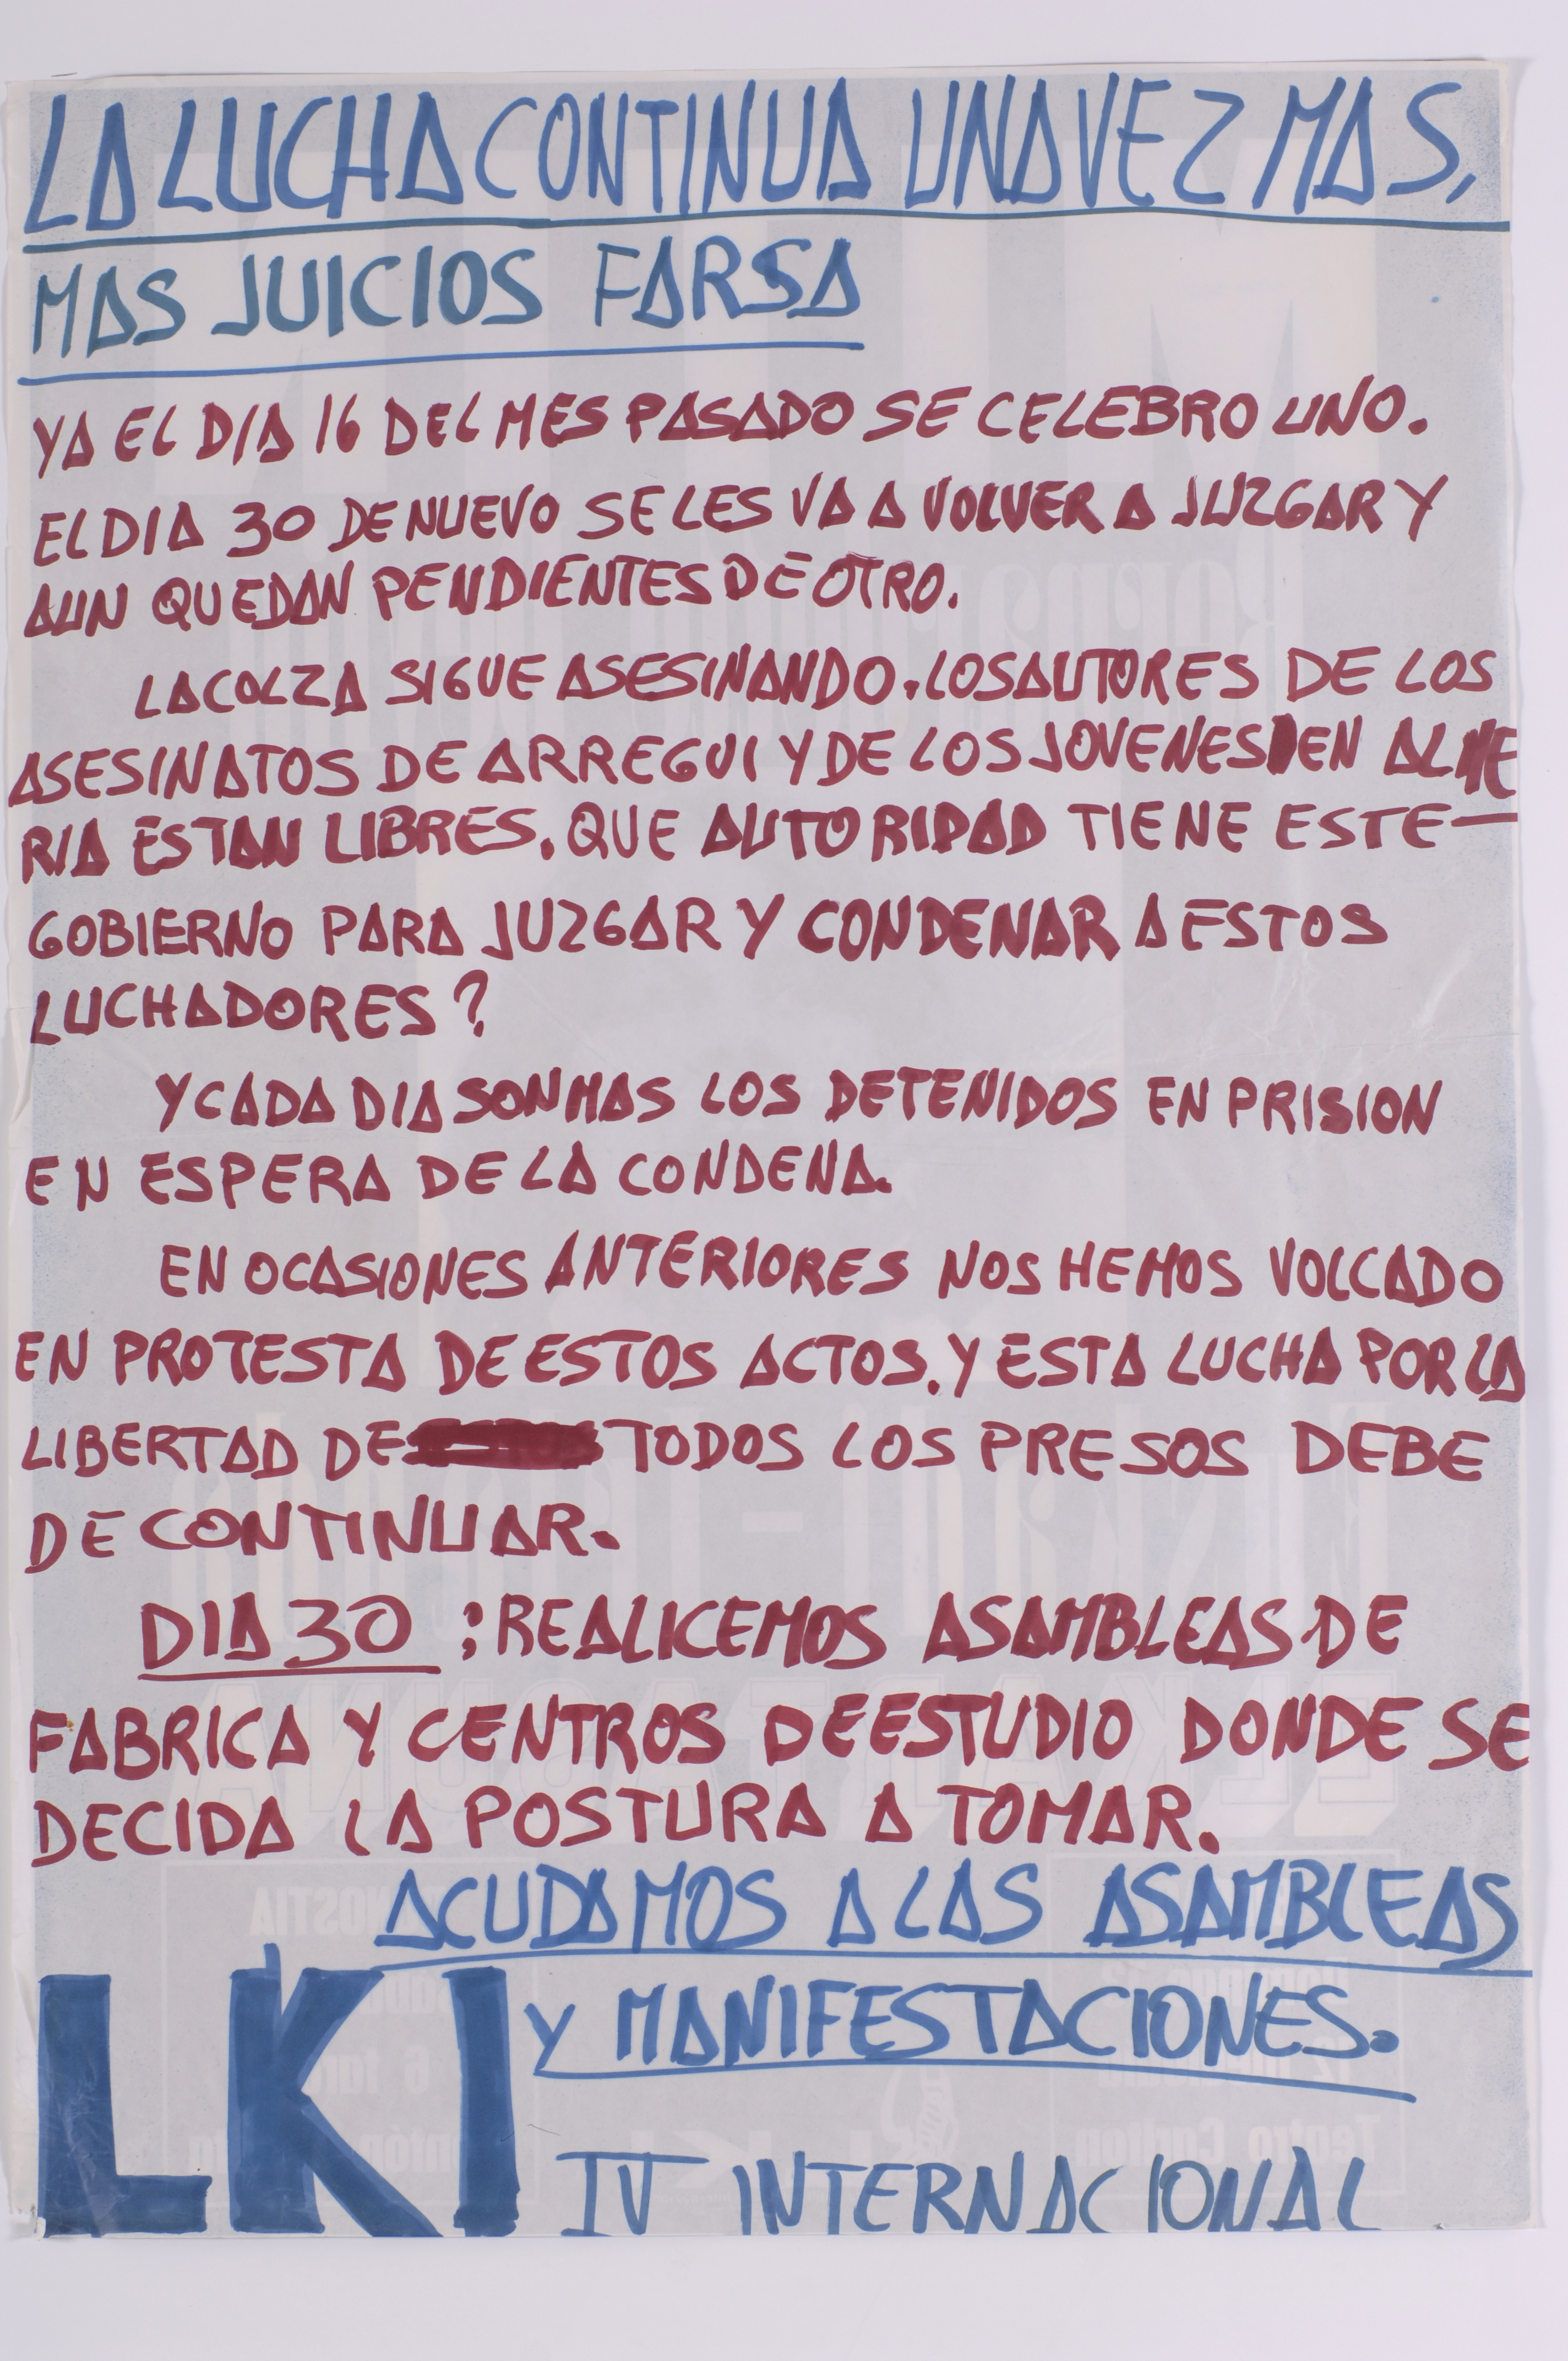 LA LUCHA CONTINUA UNA VEZ MAS,
MAS JUICIOS FARSA
YA EL DIA 16 DEL MES PASADO SE CELEBRO UNO.
EL DIA 30 DE NUEVO SE LES VA A VOLVER A JUZGAR Y
AUN QUEDAN PENDIENTES DE OTRO.
LA COLZA SIGUE ASESINANDO. LOS AUTORES DE LOS
ASESINATOS DE ARREGUI Y DE LOS JOVENES EN ALME
RIA ESTAN LIBRES. QUE AUTORIDAD TIENE ESTE—
GOBIERNO PARA JUZGAR Y CONDENAR A ESTOS
LUCHADORES?
Y CADA DIA SON MAS LOS DETENIDOS EN PRISION
EN ESPERA DE LA CONDENA.
EN OCASIONES ANTERIORES NOS HEMOS VOLCADO
EN PROTESTA DE ESTOS ACTOS. Y ESTA LUCHA POR LA
LIBERTAD DE TODOS LOS PRESOS DEBE
DE CONTINUAR.
DIA 30 : REALICEMOS ASAMBLEAS DE
FABRICA Y CENTROS DE ESTUDIO DONDE SE
DECIDA LA POSTURA A TOMAR.
ACUDAMOS A LAS ASAMBLEAS
Y MANIFESTACIONES.
LKI
IV INTERNACIONAL